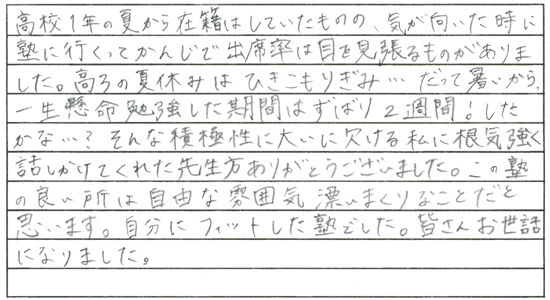 高校1年の夏から在籍はしていたものの、気が向いた時に
塾に行くってかんじで出席率は目を見張るものがありま
した。高3の夏休みはひきこもりぎみ…だって暑いから。
一生懸命勉強した期間はずばり2週間!した
かな…?そんな積極性に大いに欠ける私に根気強く
話しかけてくれた先生方ありがとうございました。この塾
の良い所は自由な雰囲気漂いまくりなことだと
思います。自分にフィットした塾でした。皆さんお世話
になりました。